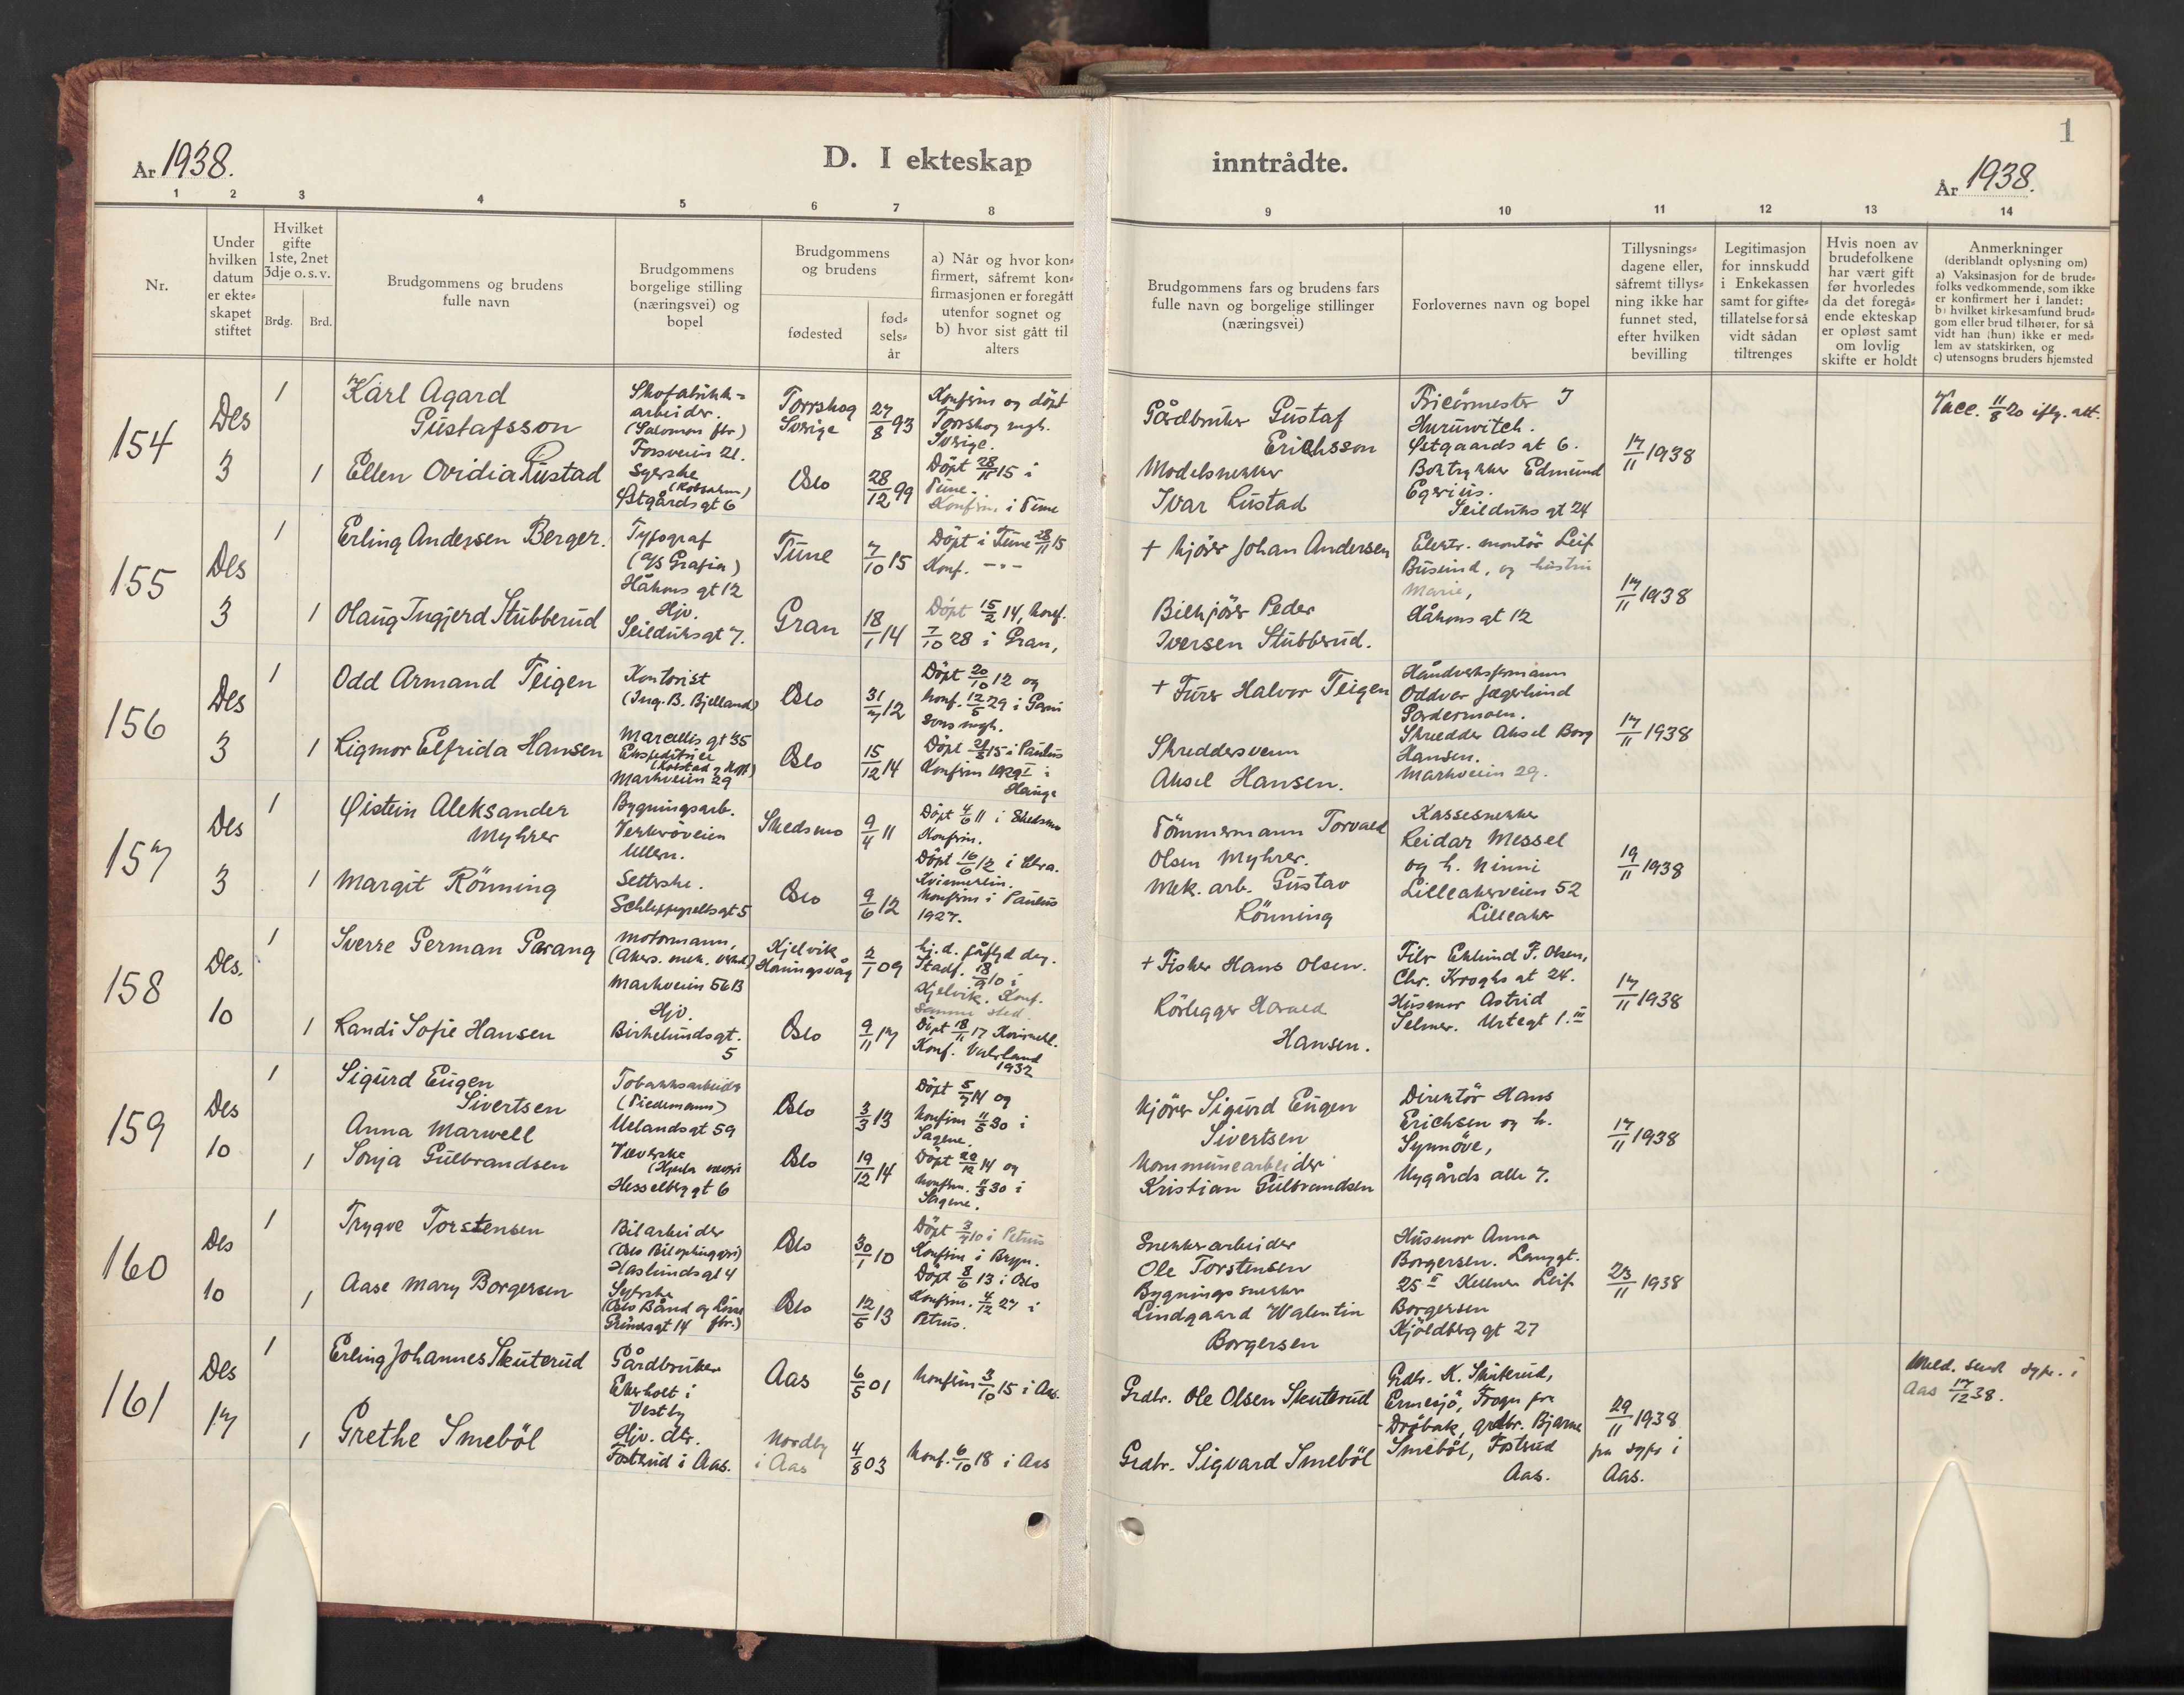 År 1938.
D. I ekteskap
inntrådte.
1
År 1938.
1 2 3 4 5 6 7 8 9 10 11 12 13 14
Nr.
Under hvilken datum er ekte-skapet stiftet
Hvilket gifte 1ste, 2net 3dje o.s.v.
Brdg. Brd.
Brudgommens og brudens fulle navn
Brudgommens borgelige stilling (næringsvei) og bopel
Brudgommens og brudens
fødested
fød-sels-år
a) Når og hvor kon-firmert, såfremt kon-firmasjonen er foregått utenfor sognet og b) hvor sist gått til alters
Brudgommens fars og brudens fars fulle navn og borgelige stillinger (næringsvei)
Forlovernes navn og bopel
Tillysnings-dagene eller, såfremt tillys-ning ikke har funnet sted, efter hvilken bevilling
Legitimasjon for innskudd i Enkekassen samt for gifte-tillatelse for så vidt sådan tiltrenges
Hvis noen av brudefolkene har vært gift før hvorledes da det foregå-ende ekteskap er opløst samt om lovlig skifte er holdt
Anmerkninger
(deriblandt oplysning om)
a) Vaksinasjon for de brude-folks vedkommende, som ikke er konfirmert her i landet:
b) hvilket kirkesamfund brud-gom eller brud tilhører, for så vidt han (hun) ikke er med-lem av statskirken, og
c) utensogns bruders hjemsted
154
Des 3
1
Karl Agard
Gustafsson
Skofabrikk-
arbeider.
(Salomon fbr)
Forsveien 21.
Torrskog
Sverige
27/8 93
Konfirm og döpt
Torrskog
Sverige.
Gårdbruker Gustaf
Erichsson
Frisörmester J
Hurüwitch.
Östgaards gt 6.
17/11 1938
Vacc. 11/8 20 iflg. att.
1
Ellen Ovidia Rustad
Syerske
Östgårds gt 6
Oslo
28/12 99
Döpt 28/11 15 i
Tune.
Konfirm. i Tune
Modelsnekker
Ivar Rustad
Boktrykker Edmund
Egerius.
Seilduks gt 24
155
Des 3
1
Erling Andersen Berger.
Typograf
(A/S Grafia)
Håkons gt 12
Tune
7/10 15
Döpt i Tune 28/11 15
Konf. -"-
+ Kjörer Johan Andersen
Elektr. montör Leif
Buseind, og hustru
Marie,
Håkons gt 12
17/11 1938
1
Olaug Ingjerd Stubberud
Hjv.
Seilduksgt 7.
Gran
18/1 14
Döpt 15/2 14, konf.
7/10 28 i Gran,
Bilkjörer Peder
Iversen Stubberud.
156
Des 3
1
Odd Armand Teigen
Kontorist
(Ing. B. Bjelland)
Marcellis gt 35
Oslo
31/7 12
Döpt 20/10 12 og
konf. 12/5 29 i Garni
sons mgh.
+ Furer Halvor Teigen
Håndverksfurmann
Oddvar Jægerlund
Gardermoen.
17/11 1938
1
Rigmor Elfrida Hansen
Ekspeditrise
Markveien 29
Oslo
15/12 14
Döpt 21/8 15 i Paulus
Konfirm 1929 i
Hauge
Skreddersvenn
Aksel Hansen.
Skredder Aksel Borg
Hansen.
Markveien 29.
157
Des 3
1
Öistein Aleksander
Myhrer
Bygningsarb.
Verkröveien
Ullern.
Skedsmo
9/4 11
Döpt 4/6 11 i Skedsmo
Konfirm.
Tömmermann Torvald
Olsen Myhrer.
Kassesnekker
Reidar Messel
og h. Ninni
Lilleakerveien 52
Lilleaker
19/11 1938
1
Margit Rönning
Setterske.
Schleppegrellsgt 5
Oslo
9/6 12
Döpt 16/6 12 i
Konfirm i Paulus
1927.
Mek. arb. Gustav
Rönning
158
Des. 10
1
Sverre German Garang
Motormann,
(Akers. mek. verkst)
Markveien 56B
Kjelvik
Honningsvåg
2/1 09
hj.d.
Stadf. 18/9 10 i
Kjelvik. Konf.
samme sted.
+ Fisker Hans Olsen.
Filr Eklund F. Olsen,
Chr. Kroghs gt 24.
17/11 1938
1
Randi Sofie Hansen
Hjv.
Birkelundsgt.
5
Oslo
9/11 17
Döpt 18/11 17
Konf. Vaterland
1932
Rörlegger Harald
Hansen.
Husmor Astrid
Selmer. Urtegt 1. III
159
Des 10
1
Sigurd Eugen
Sivertsen
Tobakksarbeider
(Tiedemann)
Uelandsgt 59
Oslo
3/3 13
Döpt 5/7 14 og
konfirm 11/5 30 i
Sagene.
Kjörer Sigurd Eugen
Sivertsen
Direktör Hans
Erichsen og h.
Synnöve,
Nygårds alle 7.
17/11 1938
1
Anna Marwell
Sonja Gulbrandsen
Væverske
(Hjula væveri
Hesselberggt 6
Oslo
19/12 14
Döpt 29/12 14 og
konfirm. 11/5 30 i
Sagene.
Kommunearbeider
Kristian Gulbrandsen
160
Des 10
1
Trygve Torstensen
Bilarbeider
(Oslo Biloplingeri)
Haslundsgt 4
Oslo
30/1 10
Döpt 3/7 10 i Petrus
Konfirm i Bryn.
Snekkerarbeider
Ole Torstensen
Husmor Anna
Borgersen. Langgt.
25 II Kellner Leif
Borgersen
Kjöldberg gt 27
23/11 1938
1
Aase Mary Borgersen
Syerske
(Oslo Bånd og Lisse
fbr.)
Grünersgt 14
Oslo
12/5 13
Döpt 8/6 13 i Oslo
Konfirm. 4/12 27 i
Petrus.
Bygningssnekker
Lindgaard Walentin
Borgersen
161
Des 17
1
Erling Johannes Skuterud
Gårdbruker
Ekeholt i
Vestby
Aas
6/5 01
Konfirm 3/10 15 i Aas.
Grdbr. Ole Olsen Skuterud
Grdbr. K. Skuterud,
Ermesjö, Frogn pr
Dröbak, grdbr. Bjarne
Smeböl, Fosterud
Aas.
29/11 1938
fra sypr i
Aas.
Meld. sendt sypr. i
Aas 17/12 38.
1
Grethe Smeböl
Hjv. dtr.
Fosterud i Aas.
Nordby
i Aas
4/8 03
Konf. 6/10 18 i Aas
Grdbr. Sigvard Smeböl